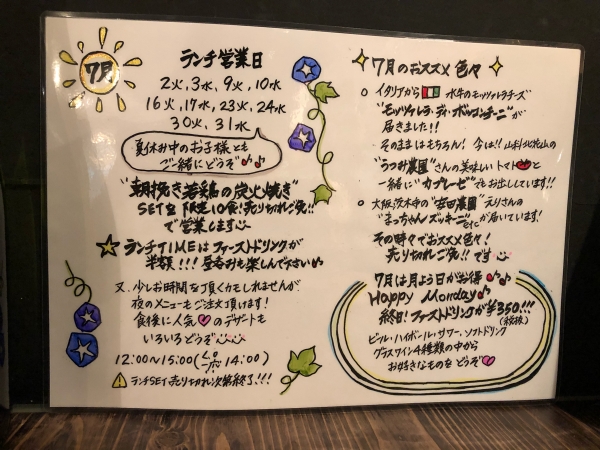 7月
ランチ営業日
2火,3水,9火,10水
16火,17水,23火,24水
30火,31水
夏休み中のお子様とも
ご一緒にどうぞ♪♪
"朝挽き若鶏の炭火焼き"
SET を 限定10食!売り切れご免!!
で営業します
★ランチTIMEはファーストドリンクが
半額!!!昼呑みも楽しんで下さい♪
又、少しお時間を頂くかもしれませんが
夜のメニューもご注文頂けます!
食後に人気♥のデザートも
いろいろどうぞ
12:00〜15:00(L.O 14:00)
⚠ランチSET売り切れ次第終了!!!
7月のおススメ色々
○イタリアから 水牛のモッツァレラチーズ
"モッツァレラ・ディ・ボッコンチーニ"が
届きました!!
そのままはもちろん!今は!!山科北花山の
"うつみ農園"さんの美味しいトマトと
一緒に"カプレーゼ"でもお出ししています!!
○大阪茨木市の"幸田農園"えりさんの
"まっちゃんズッキーニ"etcが届いています!
その時々でおススメ色々!
売り切れご免!!です
7月は月よう日がお得♪♪
Happy Monday♪
終日!ファーストドリンクが¥350!!!
(税抜)
ビール・ハイボール・サワー、ソフトドリンク
グラスワイン4種類の中から
お好きなものをどうぞ♥